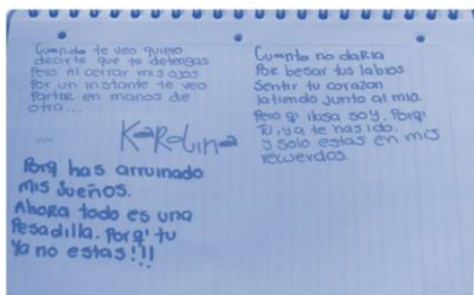 Cuando te veo quiero
decirte que te detengas
Pero Al cerrar mis ojos
Por un instante te veo
Partir en manos de
otra...
Karolina
Porq has arruinado
mis sueños.
Ahora todo es una
Pesadilla. Porq' tu
Ya no estas!!!
Cuanto no daria
Por besar tus labios
Sentir tu corazon
latiendo junto al mio
Pero q' ilusa soy. Porq'
Tu, ya te has ido.
y solo estas en mis
recuerdos.